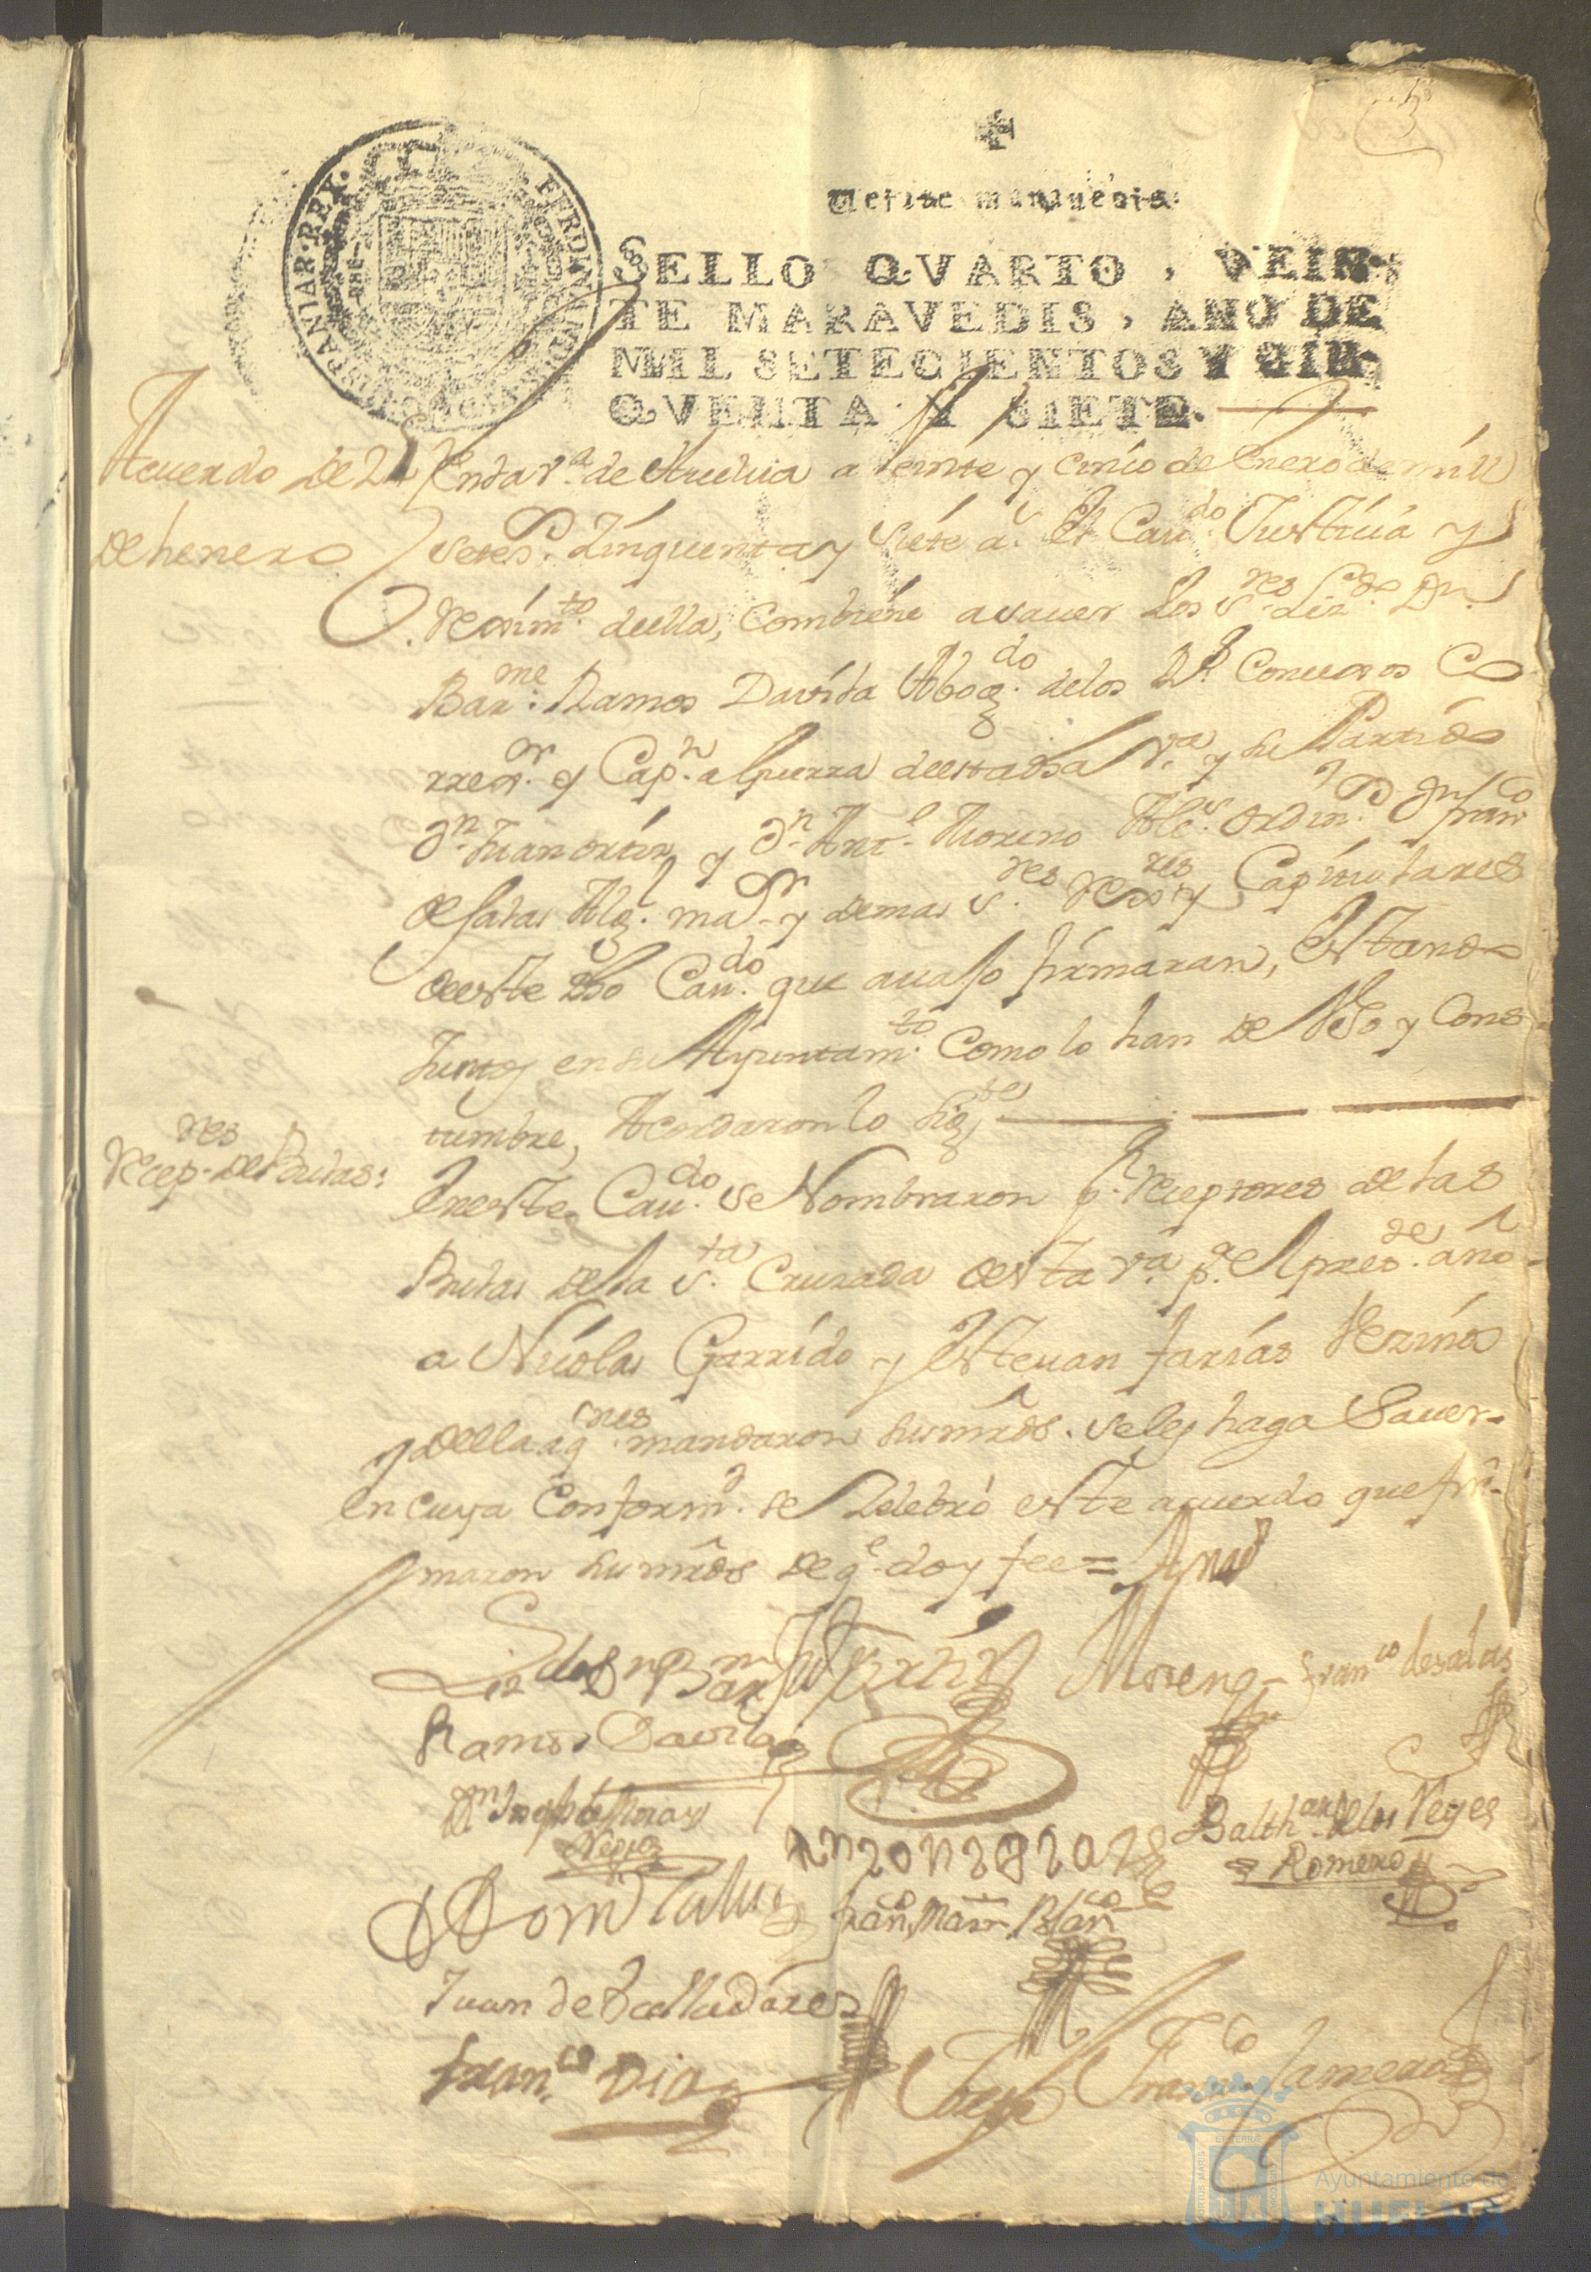 3
Veinte maravedis.
SELLO QVARTO, VEIN-
TE MARAVEDIS, AÑO DE
MIL SETECIENTOS Y CIN-
QVENTA Y SIETE.
HISPANIAR·REX· FERDINANDVS
Acuerdo de 25
de henero
En la va. de Huelva a veinte y cinco de Enero de mill
setes. zinquenta y siete as. El Cavdo. Justicia y
Reximto. della, combiene a saver los sres. Lizdo. Dn.
Barme. Ramos Davila Abogdo. de los Rs. Consexos Co
rreor. y Capn. a guerra de esta dha va. y su Partido
Dn. Juan ortiz y Dn. Anto. Moreno Alcs. ordins. Dn. franco
de salas Alg. maor. y demas sres. Rexres y Capitulares
de este dho Cavdo. que avajo firmaran, Estando
Juntos en su Ayuntamto. Como lo han de Uso y Cons
tumbre, Acordaron lo sigte
Recepres de Bulas:
En este Cavdo. se Nombraron pr. Receptores de las
Bulas de la sta. Cruzada de esta va. pa. el presde. año
a Nicolas Garrido y Estevan farias Vezinos
de ella a qnes. mandaron sus mrds. se les haga Saver
en cuya Conformd. se Zelebró este acuerdo que fir-
maron sus mrds de qe. doy fee =
Lizdo Dn Barme
Ramos Davila
Ortiz
Moreno
franco de salas
Dn Joseph de Mora y
Negro
Balthar de los Reyes
Romero
franco Marn Blanco
Juan de Valladares
franco Dias
Jorge Franco Camero
Ayuntamiento de
HUELVA